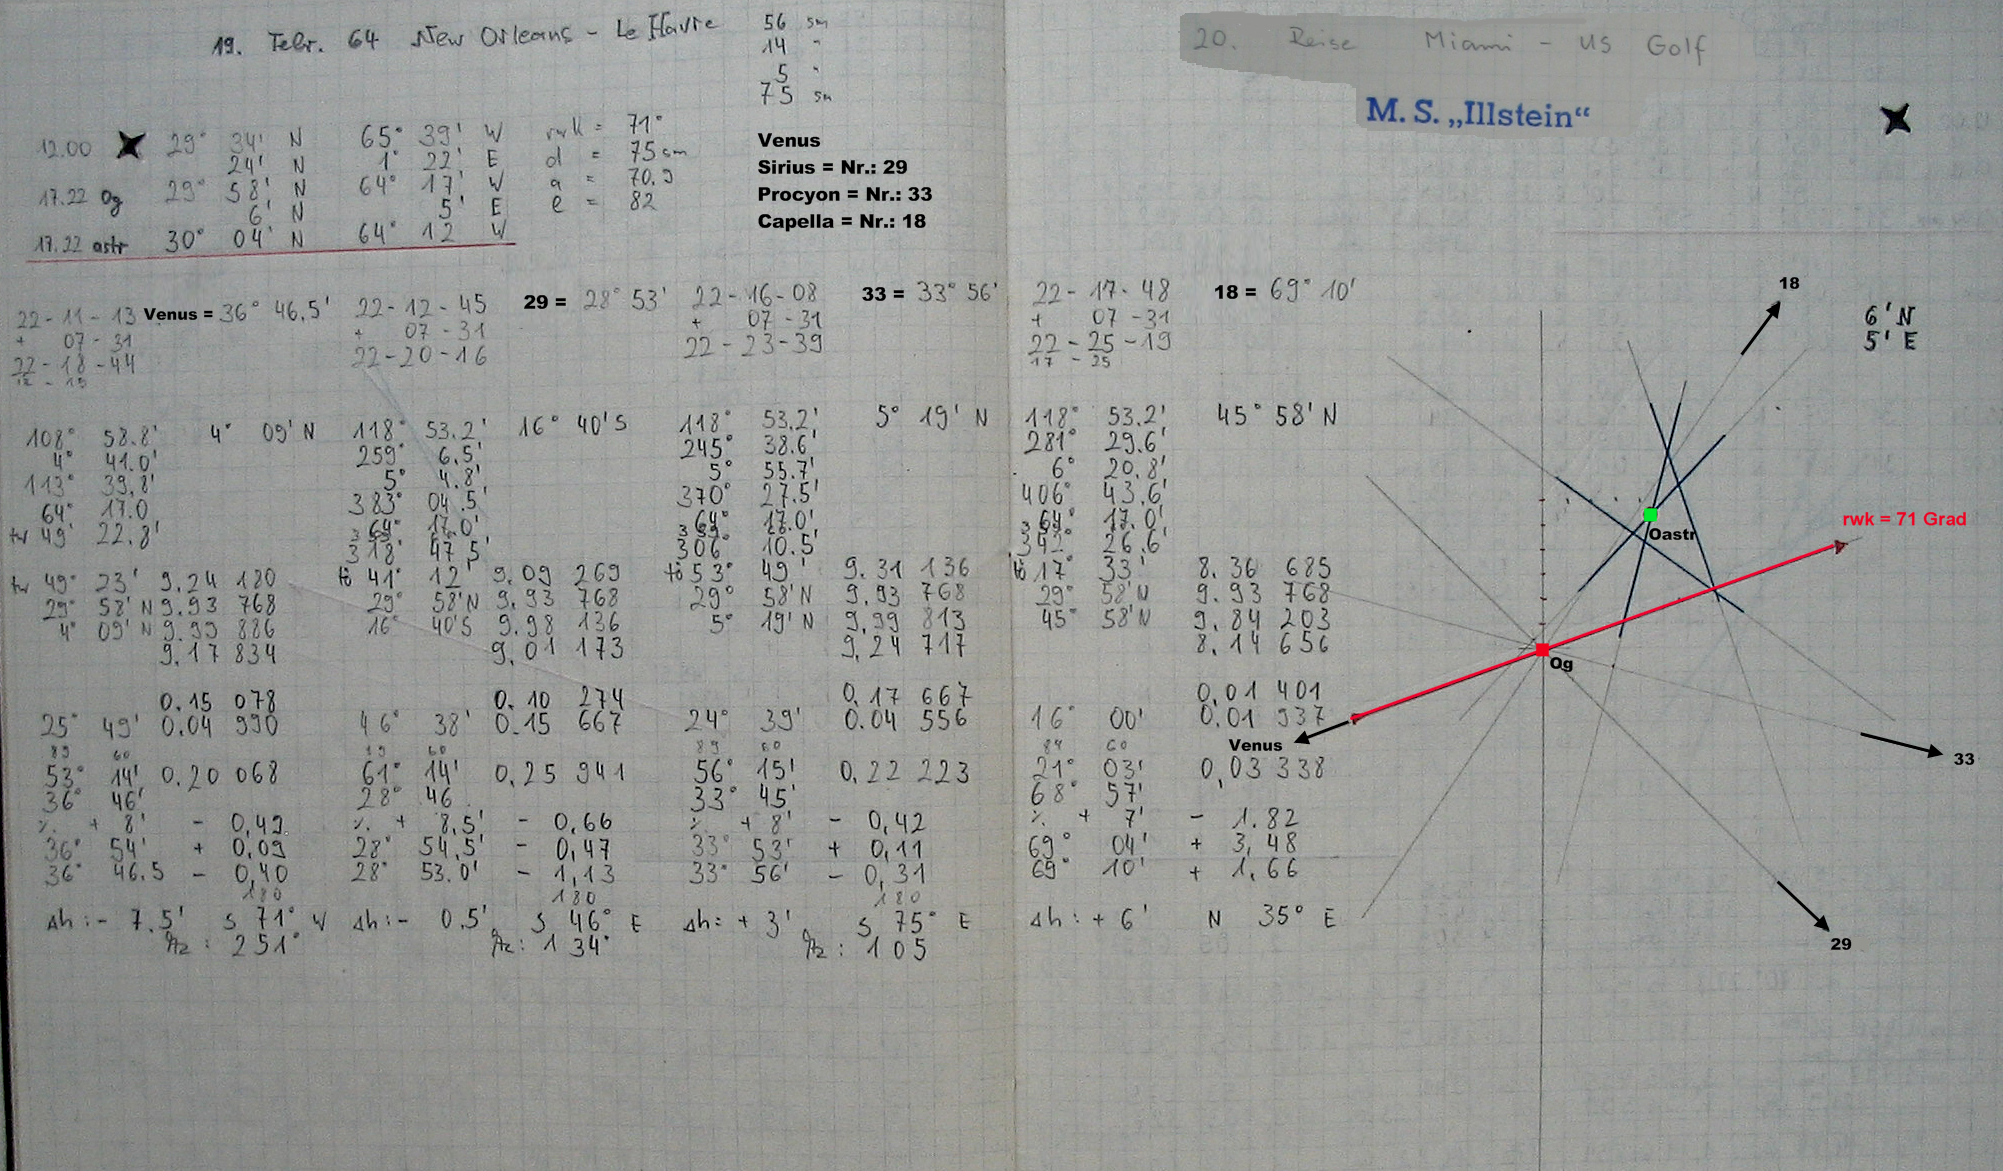 19. Febr. 64 New Orleans - Le Havre
56 sm
14 "
5 "
75 sm
20. Reise Miami - US Golf
M. S. „Illstein“
12.00 29° 34' N 65° 39' W rwk = 71°
24' N 1° 22' E d = 75 sm
17.22 Og 29° 58' N 64° 17' W a = 70.9
6' N 5' E l = 82
17.22 astr 30° 04' N 64° 12 W
Venus
Sirius = Nr.: 29
Procyon = Nr.: 33
Capella = Nr.: 18
22-11-13 Venus = 36° 46,5'
+ 07-31
22-18-44
12-15
108° 58.8' 4° 09' N
4° 41.0'
113° 39,8'
64° 17.0
tw 49° 22.8'
tw 49° 23' 9.24 180
29° 58' N 9.93 768
4° 09' N 9.99 886
9.17 834
0.15 078
25° 49' 0.04 990
89 60
53° 14' 0,20 068
36° 46'
+ 8' - 0,49
36° 54' + 0,09
36° 46.5 - 0,40
180
Δh: - 7.5' S 71° W
Az: 251°
22-12-45 29 = 28° 53'
+ 07-31
22-20-16
118° 53.2' 16° 40' S
259° 6.5'
5° 4.8'
383° 04.5'
64° 17.0'
318° 47.5'
tö 41° 12' 9.09 269
29° 58' N 9.93 768
16° 40' S 9.98 136
9.01 173
0.10 274
46° 38' 0.15 667
89 60
61° 14' 0,25 941
28° 46
+ 8,5' - 0,66
28° 54,5' - 0,47
28° 53.0' - 1,13
180
Δh: - 0.5' S 46° E
Az: 134°
22-16-08 33 = 33° 56'
+ 07-31
22-23-39
118° 53.2' 5° 19' N
245° 38.6'
5° 55.7'
370° 27.5'
64° 17.0'
306° 10.5'
tö 53° 49' 9.31 136
29° 58' N 9.93 768
5° 19' N 9,99 813
9,24 717
0.17 667
24° 39' 0.04 556
89 60
56° 15' 0,22 223
33° 45'
+ 8' - 0,42
33° 53' + 0,11
33° 56' - 0,31
180
Δh: + 3' S 75° E
Az: 105
22-17-48 18 = 69° 10'
+ 07-31
22-25-19
17-25
118° 53.2' 45° 58' N
281° 29.6'
6° 20.8'
406° 43.6'
64° 17.0'
342° 26.6'
tö 17° 33' 8.36 685
29° 58' N 9.93 768
45° 58' N 9.84 203
8.14 656
0,01 401
16° 00' 0.01 937
89 60
21° 03' 0,03 338
68° 57'
+ 7' - 1.82
69° 04' + 3,48
69° 10' + 1,66
Δh: + 6' N 35° E
18
6' N
5' E
rwk = 71 Grad
Oastr
Og
Venus
33
29